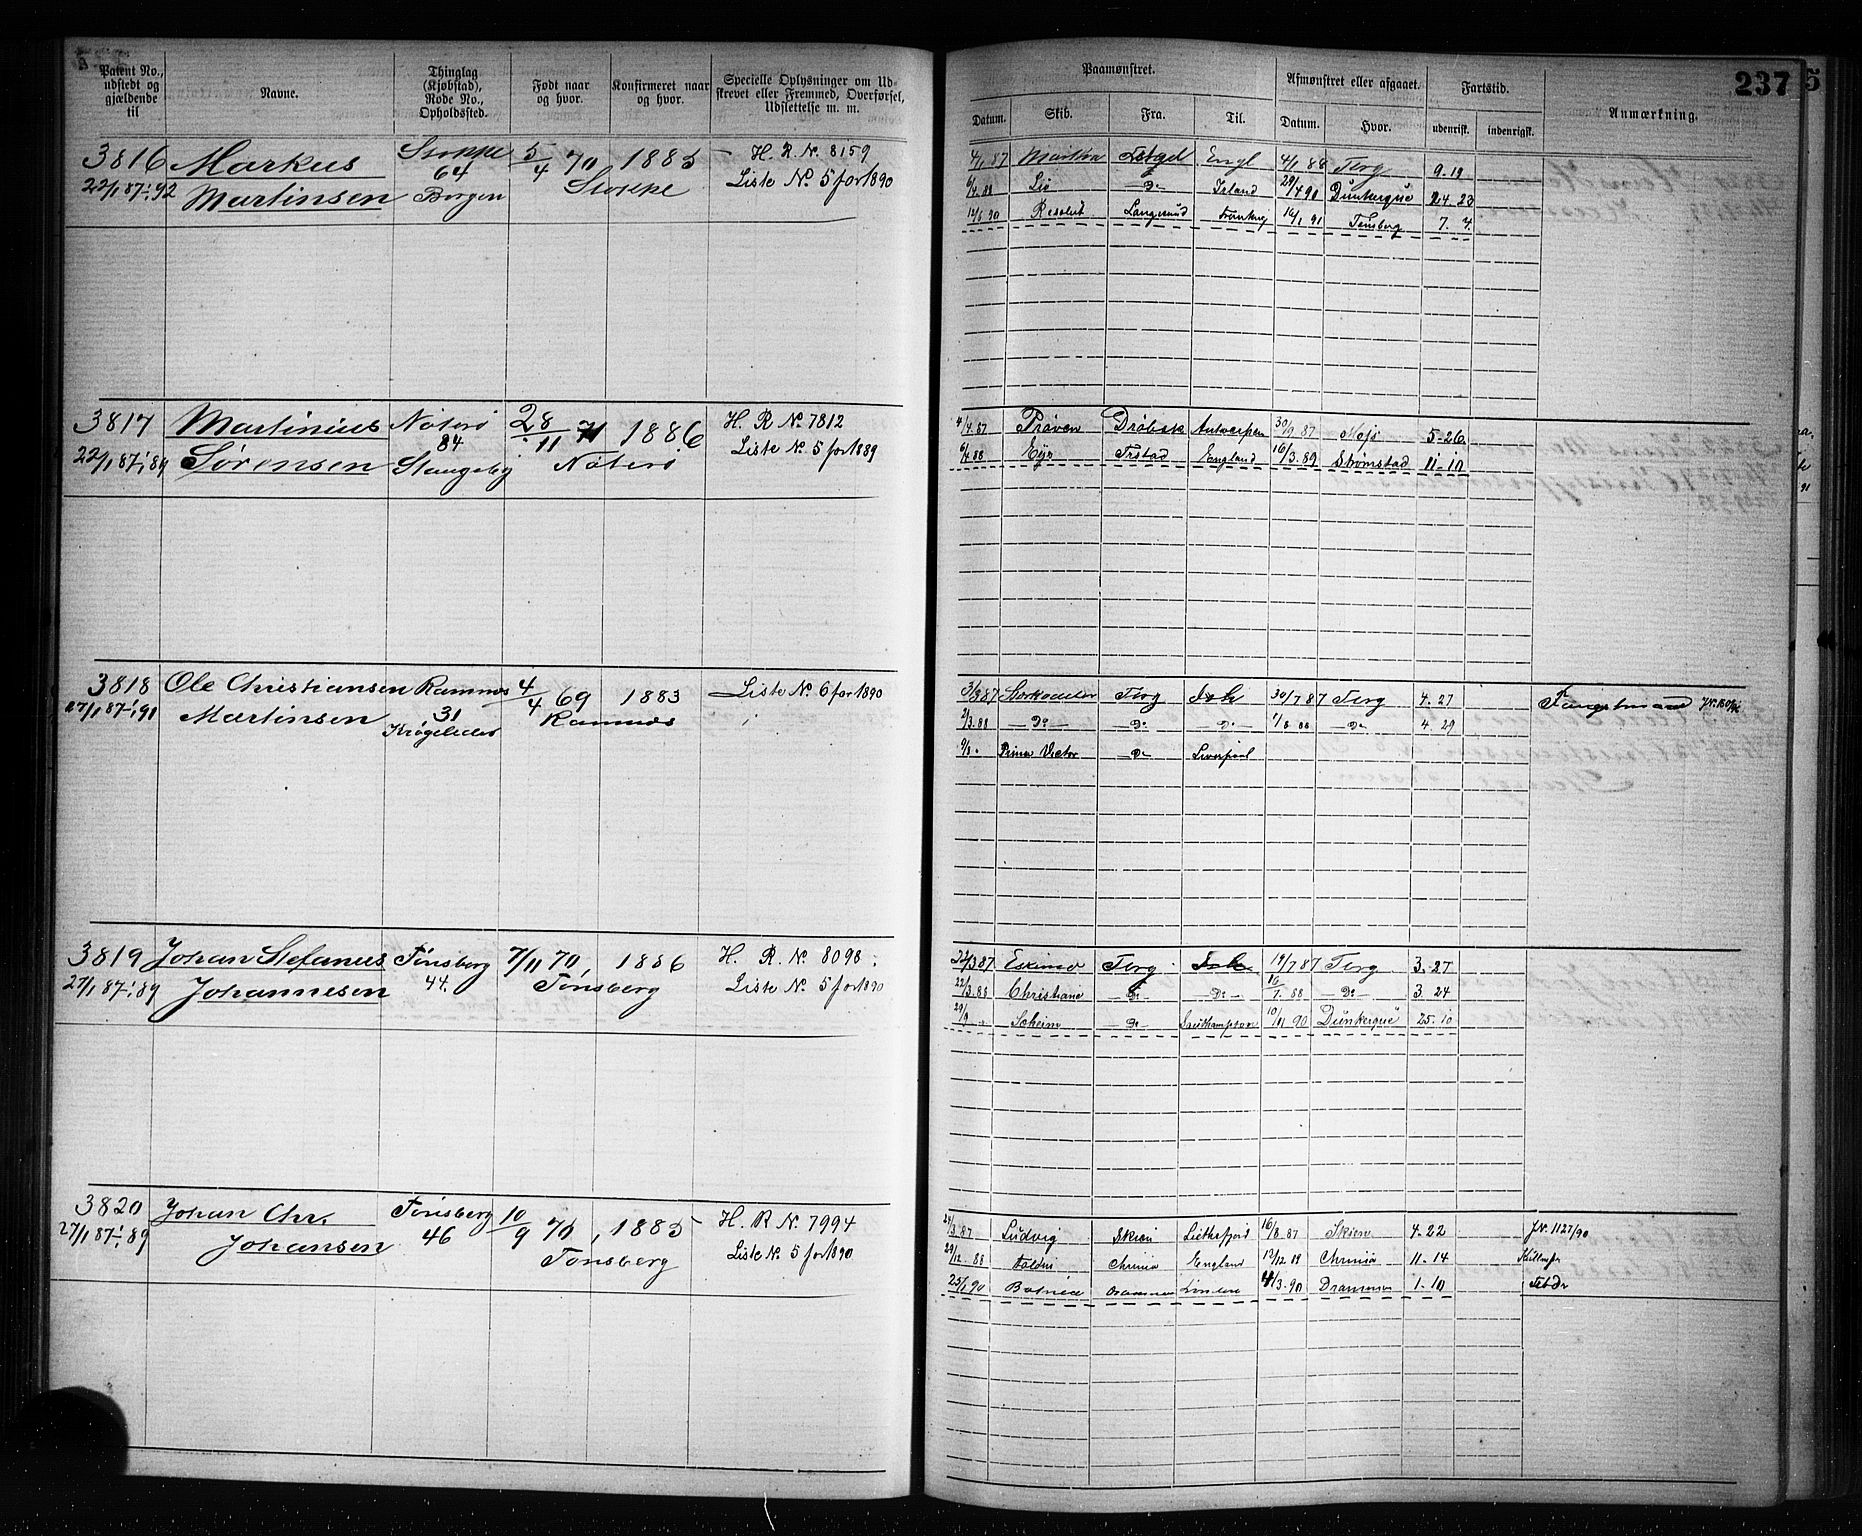 Patent No., udstedt og gjældende til
Navne.
Thinglag (Kjøbstad), Rode No., Opholdssted.
Født naar og hvor.
Konfirmeret naar og hvor.
Specielle Oplysninger om Udskrevet eller Fremmed, Overførsel, Udslettelse m. m.
Paamønstret.
Afmønstret eller afgaaet.
Fartstid.
Anmærkning.
237
Datum.
Skib.
Fra.
Til.
Datum.
Hvor.
udenrisk.
indenrigsk.
3816 Markus Stokke 5/4 70 1885 H. R. No. 8159
22/1 87-1/1 92 Martinsen 64 Borgen Stokke Liste No. 5 for 1890
4/1 87 Martha Engl 4/1 88 Tbrg 9.19
6/4 88 Do Island 29/4 90 Dünkerque 24 23
12/5 90 Resolut Langesund 16/1 91 Tønsberg 7. 4
3817 Martinius Nøterø 28/11 71 1886 H. R No. 7812
22/1 87-1/1 89 Sørensen 84 Stangeby Nøterø Liste No. 5 for 1889
4/4 87 Prøven Drøbak Antwerpen 30/9 87 Mosś 5-26
6/4 88 Frstad England 16/3 89 Strømstad 11-10
3818 Ole Christiansen Ramnes 4/4 69 1883 Liste No. 6 for 1890
27/1 87-1/1 91 Martinsen 31 Ramnes
3/3 87 Tbrg Ish 30/7 87 Tbrg 4. 27 Fangstmand
2/3 88 Do Do Do 1/8 88 Do 4. 29
9/8 Prins Victor Do Liverpool
3819 Johan Stefanus Tønsberg 7/11 70, 1886 H. R. No. 8098
27/1 87-1/1 89 Johannesen 44. Tønsberg Liste No. 5 for 1890
22/3 87 Eskimo Tbrg Ish 19/7 87 Tbrg 3. 27
22/3 88 Christiane Do Do 16/7 88 Do 3. 24
29/9 Solheim Do Southampton 10/11 90 Dünkerque 25. 10
3820 Johan Chr. Tønsberg 10/9 70, 1885 H. R No. 7994
27/1 87-1/1 89 Johansen 46 Tønsberg Liste No. 5 for 1890
24/3 87 Ludvig Skien 16/8 87 Skien 4. 22 JNo. 1127/90
20/12 88 Chrnia England 12/12 89 Chrnia 11. 14
25/1 90 Drammen 4/3 90 Drammen 1. 10